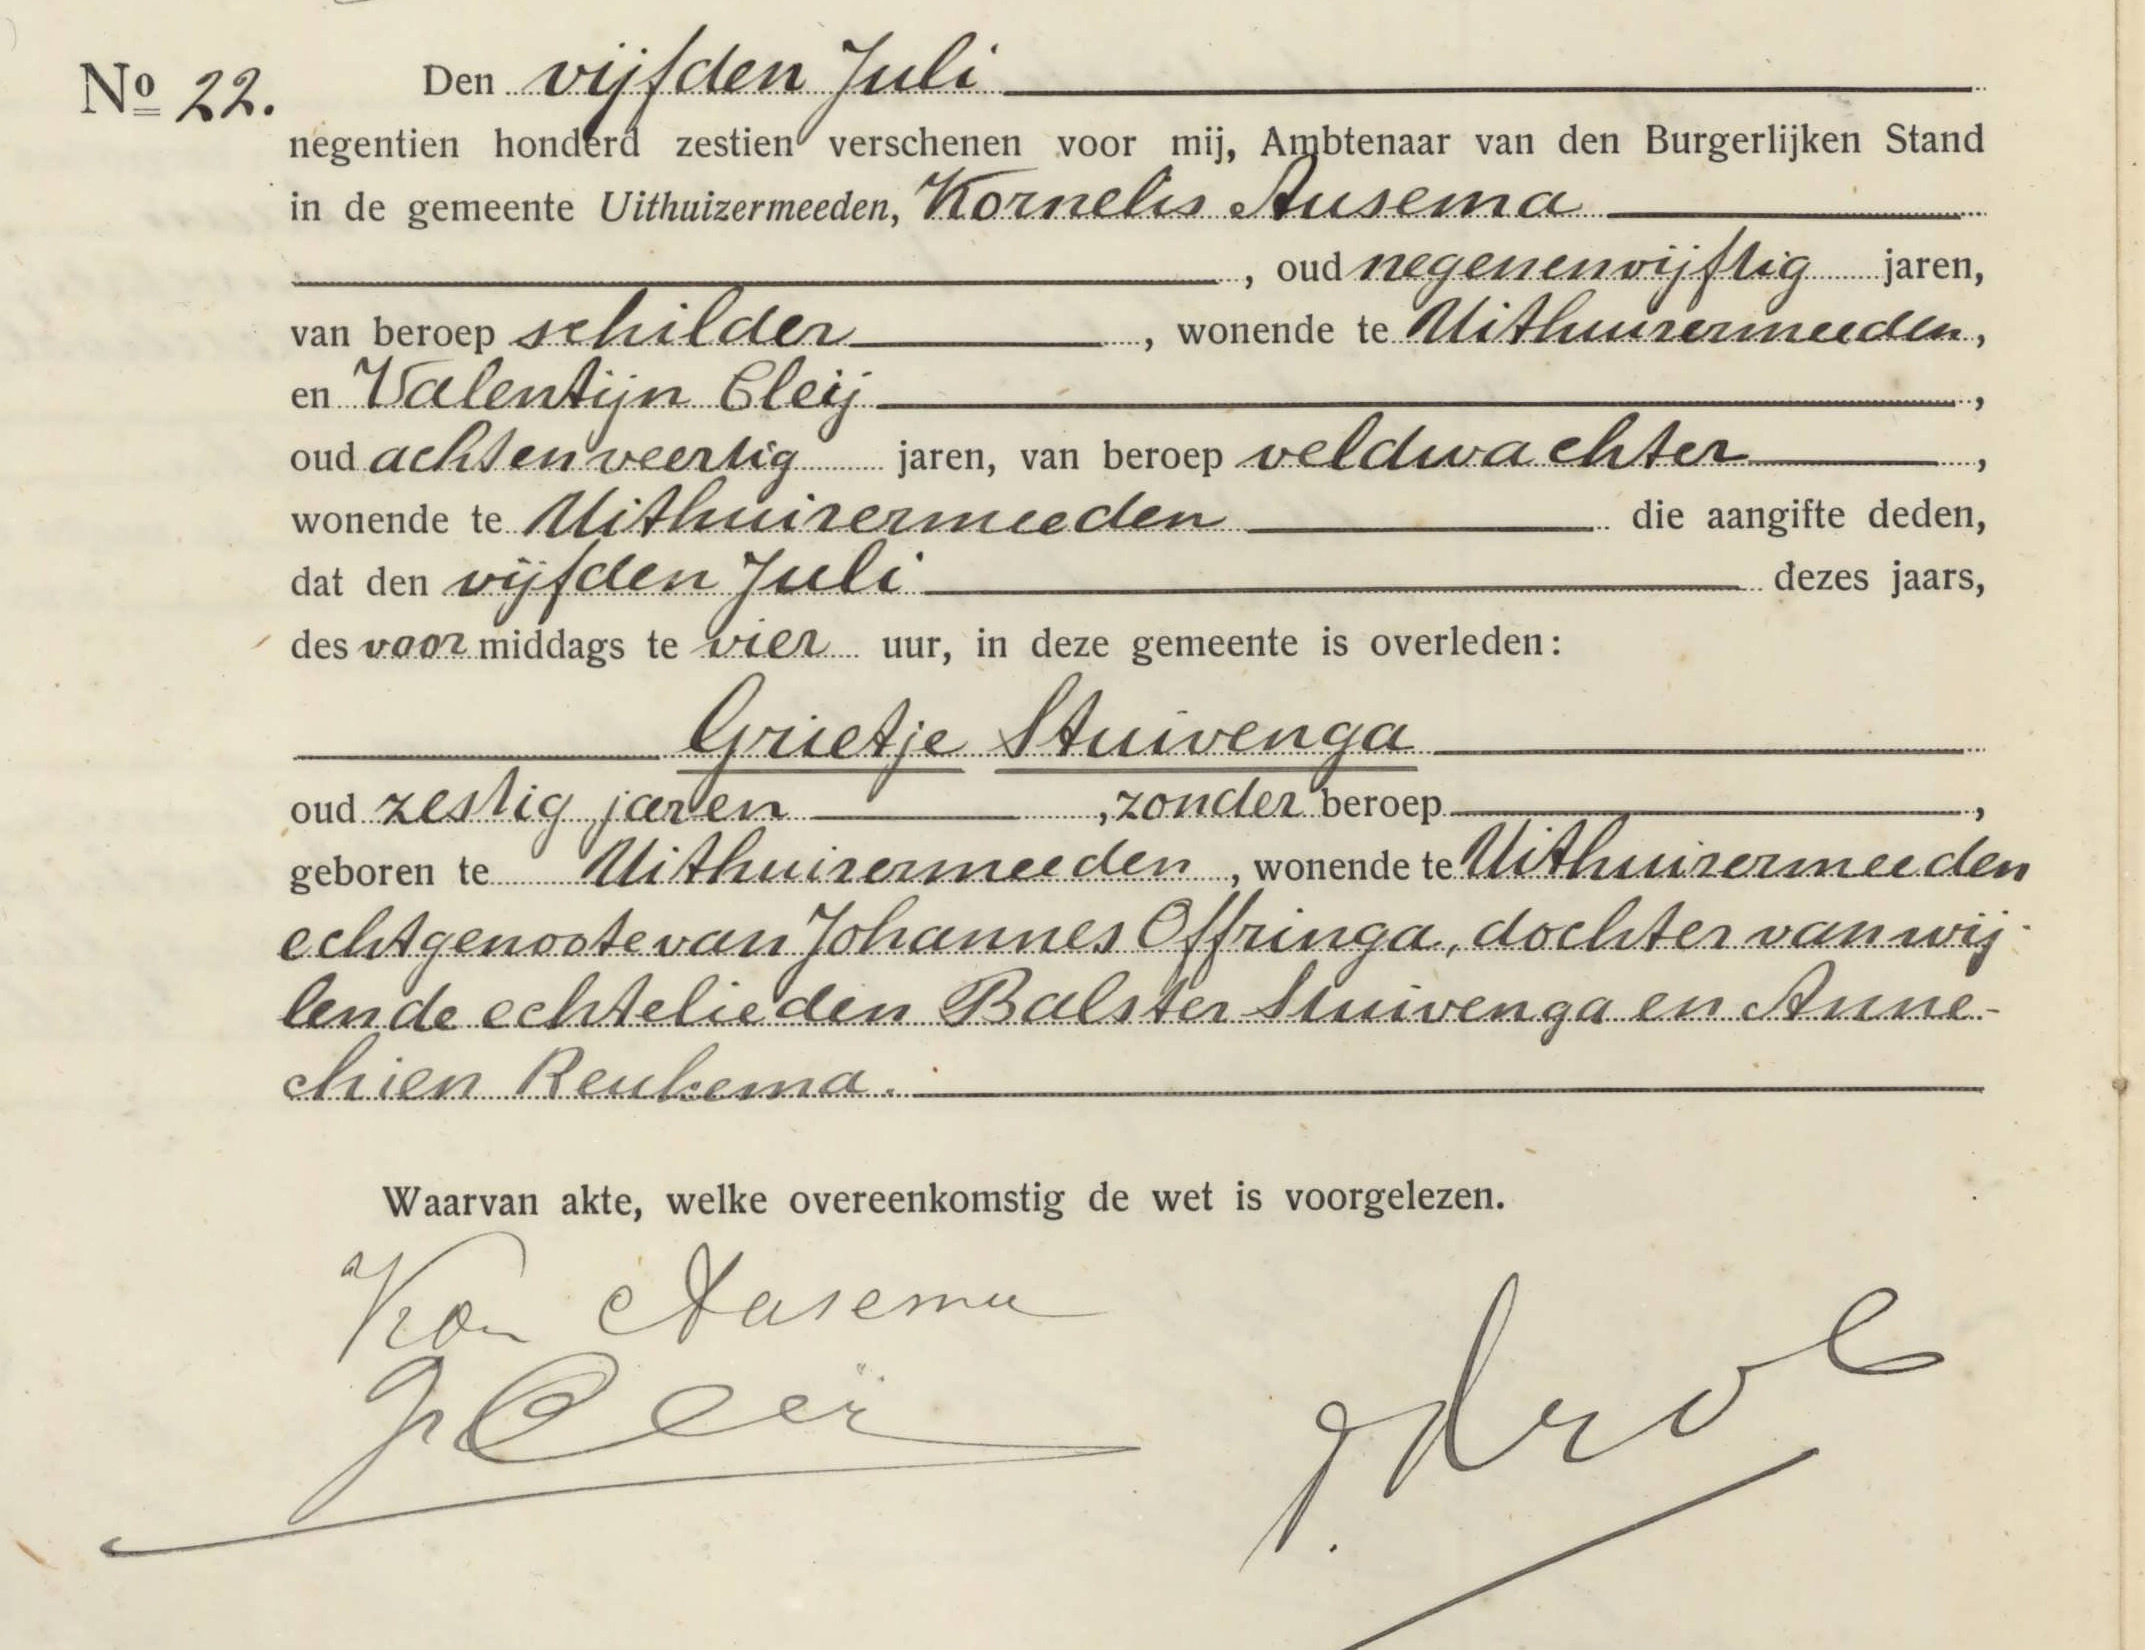 No 22. Den vijfden Juli
negentien honderd zestien verschenen voor mij, Ambtenaar van den Burgerlijken Stand
in de gemeente Uithuizermeeden, Kornelis Ausema
, oud negenenvijftig jaren,
van beroep schilder, wonende te Uithuizermeeden,
en Valentijn Cleij,
oud achtenveertig jaren, van beroep veldwachter,
wonende te Uithuizermeeden die aangifte deden,
dat den vijfden Juli dezes jaars,
des voormiddags te vier uur, in deze gemeente is overleden:
Grietje Stuivenga
oud zestig jaren, zonder beroep,
geboren te Uithuizermeeden, wonende te Uithuizermeeden
echtgenoote van Johannes Offringa, dochter van wij-
lende echtelieden Balster Stuivenga en Anne-
chien Reukema.
Waarvan akte, welke overeenkomstig de wet is voorgelezen.
Kor Ausema